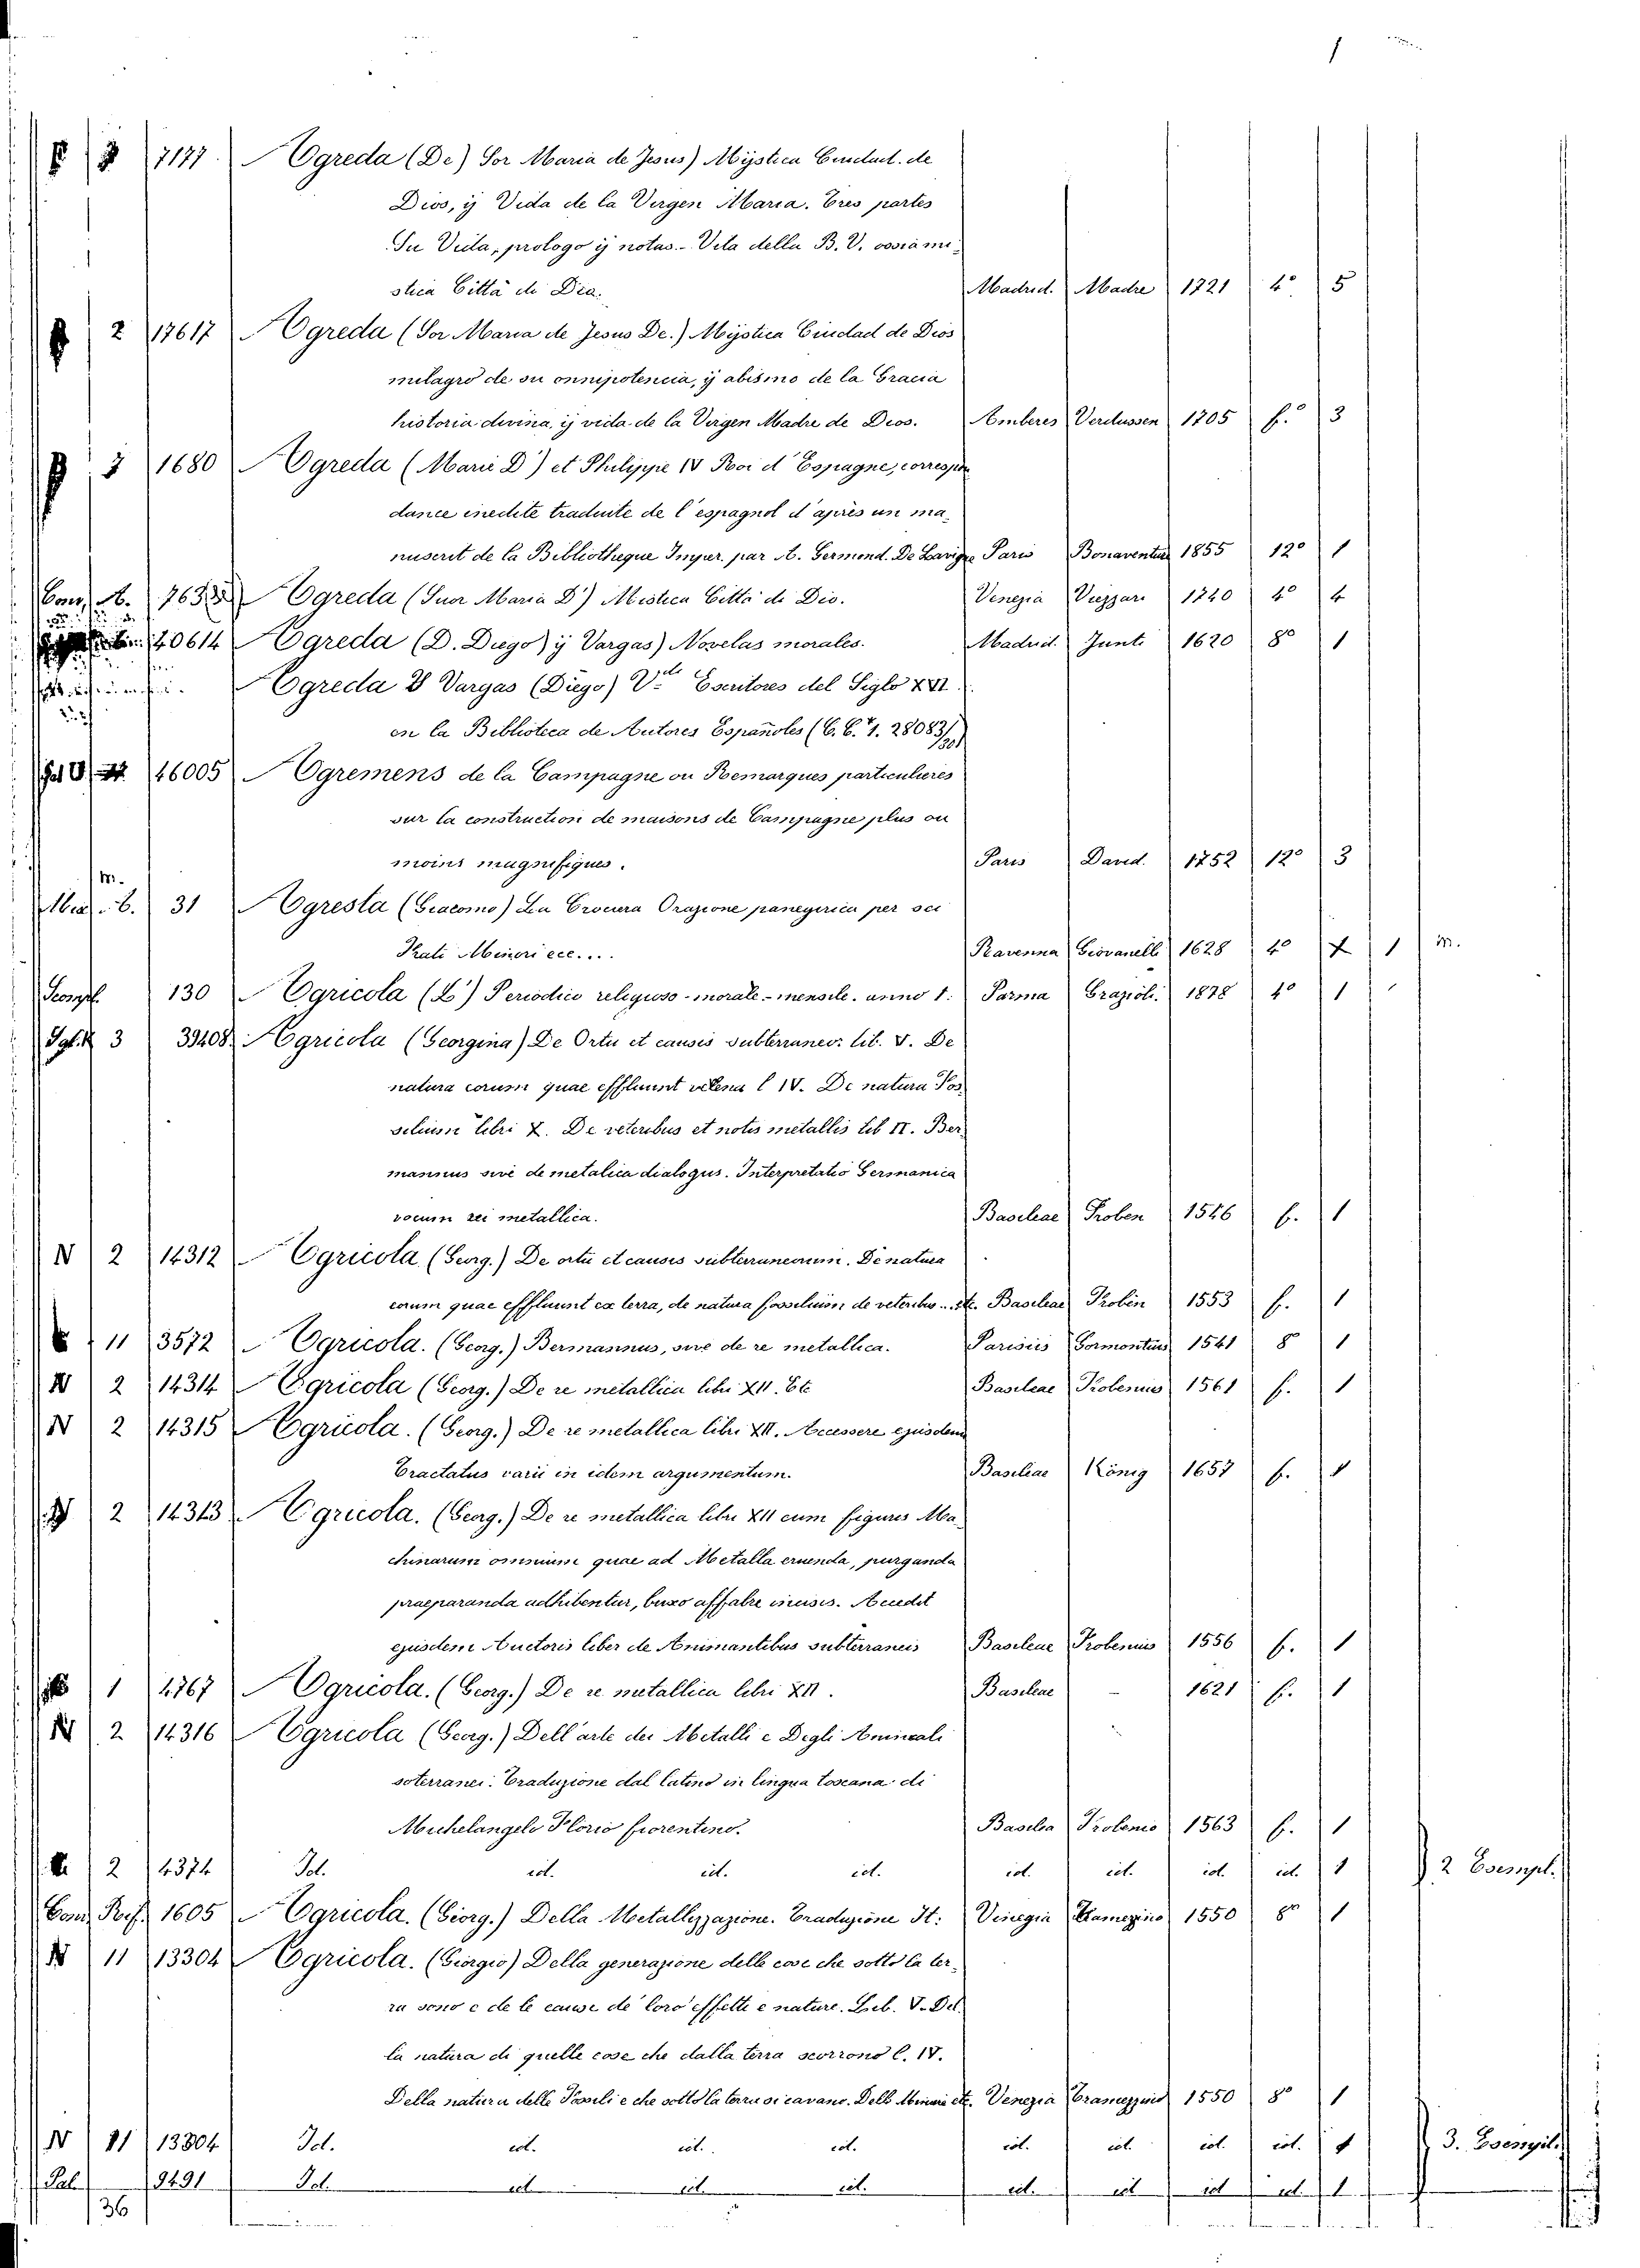 1
7177. Agreda (De) Sor Maria de Jesus) Mÿstica Ciudad. de
Dios, ÿ Vida de la Vergen Maria. Tres partes
Su Vida, prologo ÿ notas. - Vita della B. V. ossia mi-
stica Città di Dio. Madrid. Madre 1721 4° 5
2 17617 Agreda (Sor Maria de Jesus De.) Mÿstica Ciudad de Dios
milagro de su omnipotencia, ÿ abismo de la Gracia
historia divina, ÿ vida de la Virgen Madre de Dios. Amberes Verdussen 1705 f.° 3
3 1680 Agreda (Marie D') et Philippe IV Roi d'Espagne, correspon
dance inedite traduite de l'espagnol d'après un ma-
nuscrit de la Bibliotheque Imper. par A. Germond. De Lavigne Paris Bonaventure 1855 12° 1
Cons, A. Agreda (Suor Maria D') Mistica Citta di Dio. Venezia Viezzari 1740 4° 4
40614 Agreda (D. Diego) ÿ Vargas) Novelas morales. Madrid. Junti 1620 8° 1
Agreda y Vargas (Diego) V. Escritores del Siglo XVI
en la Biblioteca de Autores Españoles (C. C. 1. 28083/
46005 Agremens de la Campagne ou Remarques particulieres
sur la construction de maisons de Campagne plus ou
moins magnifiques. Paris David. 1752 12° 3
m.
Misc. b. 31 Agresta (Giacomo) La Crociera Orazione panegirica per sei
Frati Minori ecc.... Ravenna Giovanelli 1628 4° 1 m.
130 Agricola (L') Periodico religioso - morale - mensile. anno 1. Parma Grazioli. 1878 4° 1
3 39408. Agricola (Georgina) De Ortu et causis subterraneor. lib. V. De
natura eorum quae effluunt lib IV. De natura Fos-
silium libri X. De veteribus et notis metallis lib II. Ber-
mannus sive de metalica dialogus. Interpretatio Germanica
vocum rei metallica. Basileae Froben 1546 f. 1
N 2 14312 Agricola (Georg.) De ortu et causis subterraneorum. De natura
eorum quae effluunt ex terra, de natura fossilium, de veteribus... etc. Basileae Froben 1553 f. 1
11 3572 Agricola. (Georg.) Bermannus, sive de re metallica. Parisiis Gormontius 1541 8° 1
N 2 14314 Agricola (Georg.) De re metallica libri XII. Etc Basileae Frobenius 1561 f. 1
N 2 14315 Agricola. (Georg.) De re metallica libri XII. Accessere ejusdem
Tractatus varii in idem argumentum. Basileae König 1657 f. 1
N 2 14313 Agricola. (Georg.) De re metallica libri XII cum figuris Ma-
chinarum omnium quae ad Metalla eruenda, purganda
praeparanda adhibentur, buxo affabre incisis. Accedit
ejusdem Auctoris liber de Animantibus subterraneis Basileae Frobenius 1556 f. 1
1 4767 Agricola. (Georg.) De re metallica libri XII. Basileae - 1621 f. 1
N 2 14316 Agricola (Georg.) Dell'arte dei Metalli e Degli Animali
soterranei. Traduzione dal latino in lingua toscana di
Michelangelo Florio fiorentino. Basilea Frobenio 1563 f. 1
2 4374 Id. id. id. id. id. id. id. id. 1 2 Esempl.
Cons, Ref. 1605 Agricola. (Giorg.) Della Metallizzazione. Traduzione It: Vinegia Tramezino 1550 8° 1
N 11 13304 Agricola. (Giorgio) Della generazione delle cose che sotto la ter-
ra sono e de le cause de' loro effetti e nature. Lib. V. Del
la natura di quelle cose che dalla terra scorrono l. IV.
Della natura delle Fossili e che sotto la terra si cavano. Delle Minire etc. Venezia Tramezzino 1550 8° 1
N 11 13304 Id. id. id. id. id. id. id. id. 1 3. Esempil.
Pal. 9491 Id. id. id. id. id. id id id. 1
36